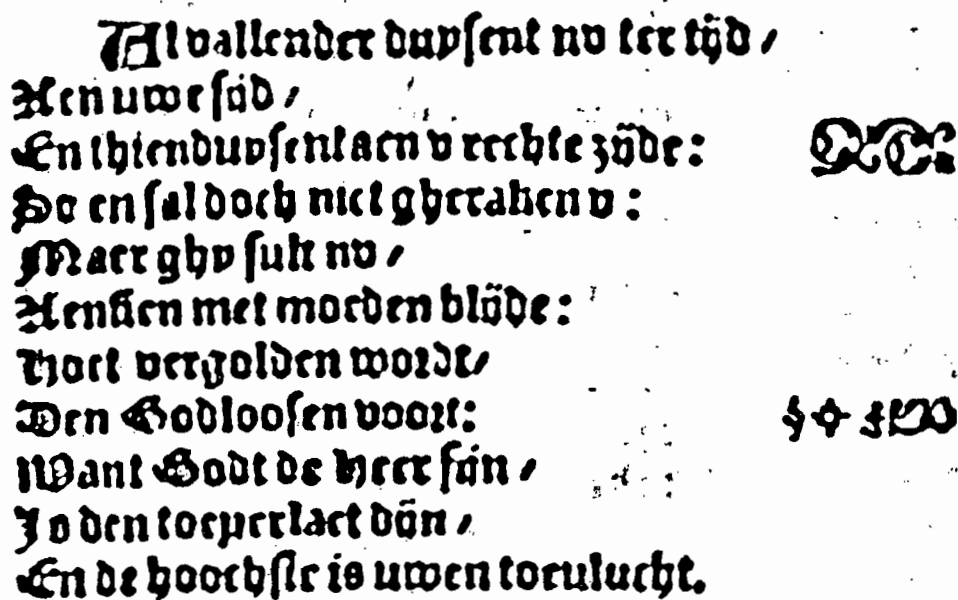 Al vallender duysent nv ter tijd /
Aen uwe sijd /
En thienduysent aen v rechte zijde:
So en sal doch niet gheraken v:
Maer ghy sult nv /
Aensien met moeden blijde:
Hoet vergolden wordt /
Den Godloosen voort:
Want Godt de Heer fijn /
Is den toeverlaet dijn /
En de hoochste is uwen toevlucht.